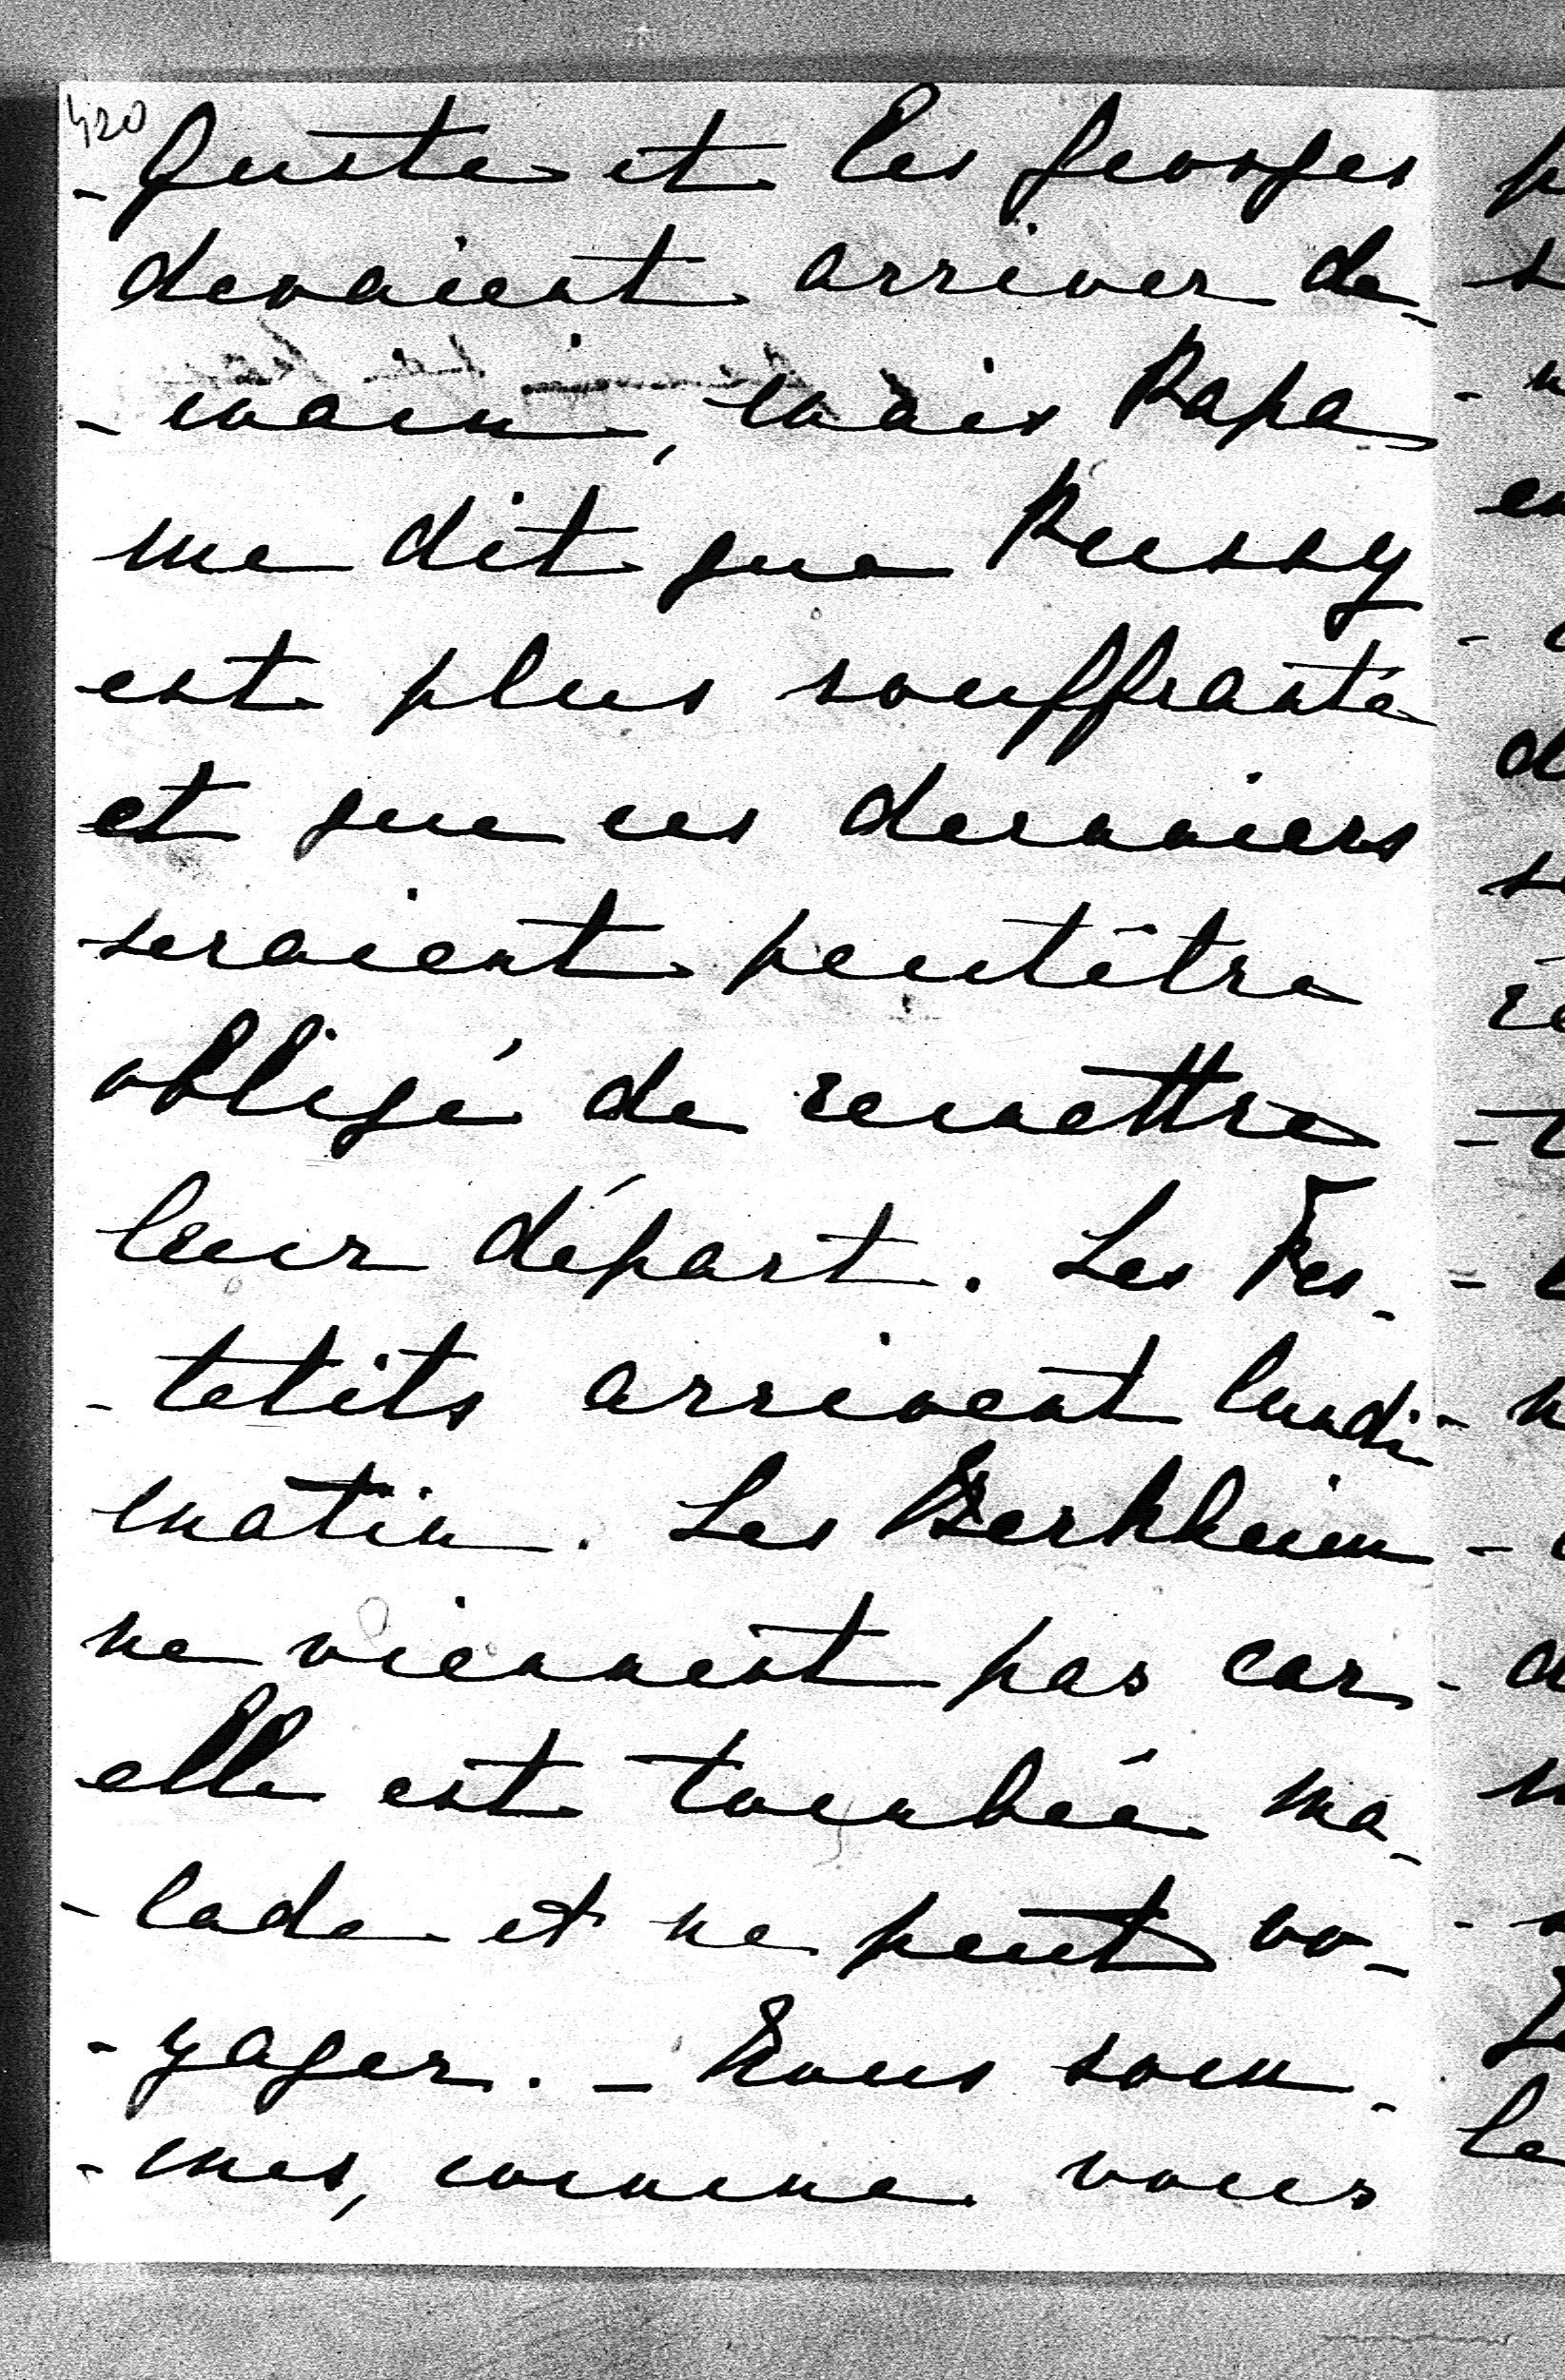 420
- guste et les georges
devaient arriver de-
- main, mais Papa
me dit que Pussy
est plus souffrante
et que ces derniers
seraient peutêtre
obligé de remettre
leur départ. Les Fes-
- tetits arrivent lundi
matin. Les Berkheim
ne viennent pas car
elle est tombée ma-
- lade et ne peut vo-
- yager. - Nous som-
- mes, comme vous